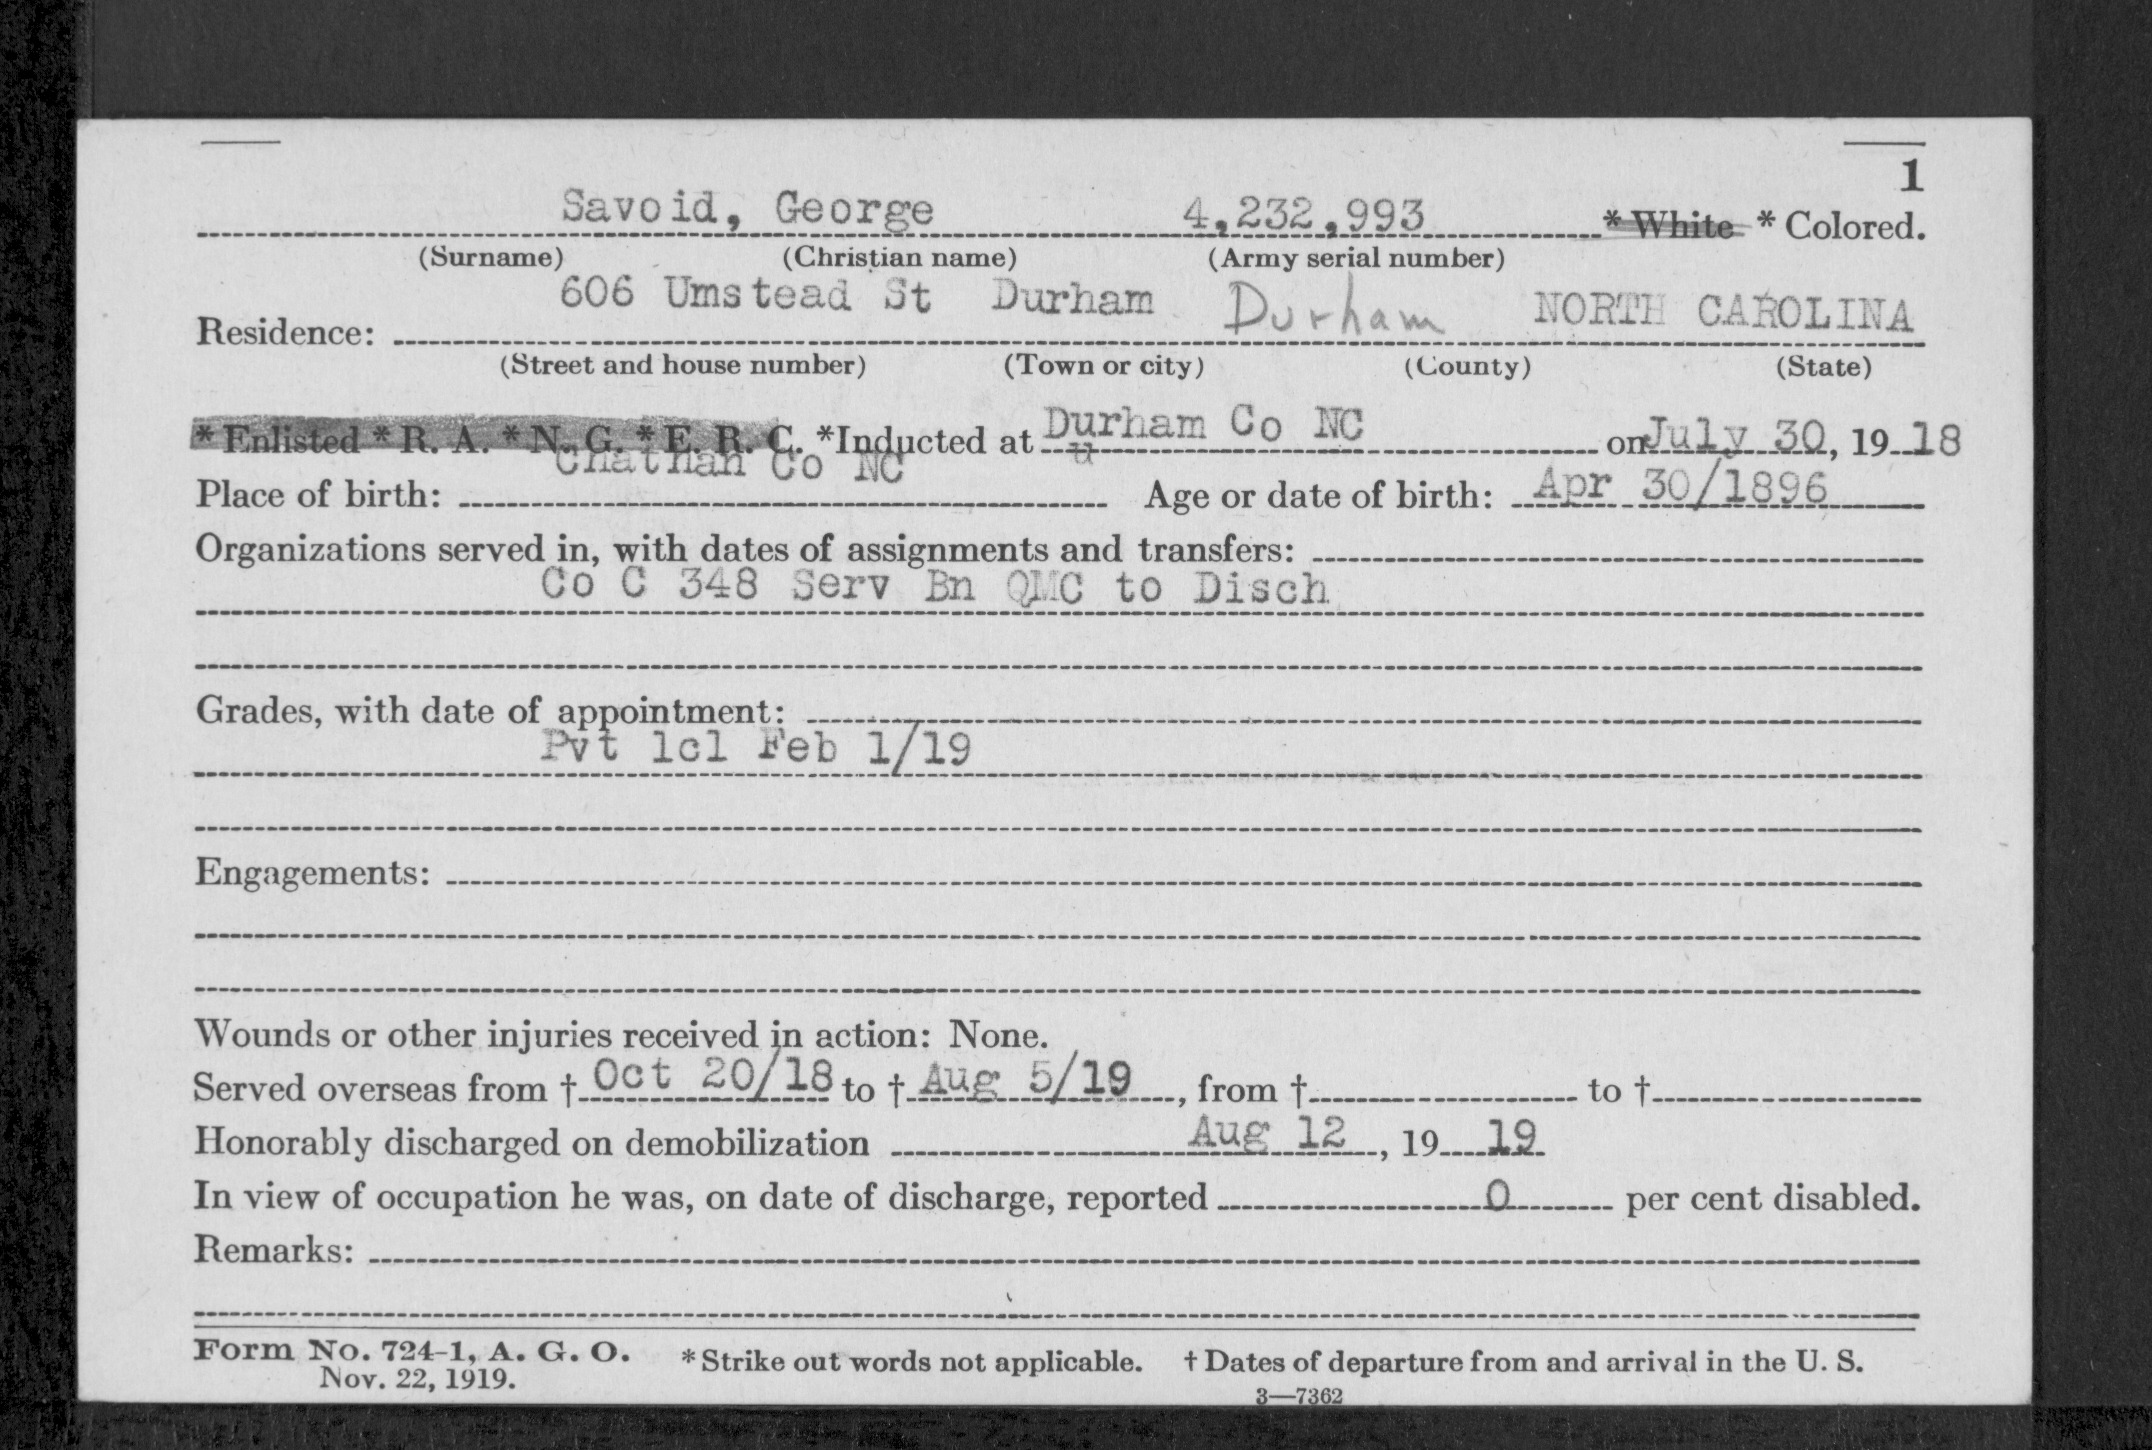 1
Savoid, George 4,232,993 * White * Colored.
(Surname) (Christian name) (Army serial number)
606 Umstead St Durham Durham NORTH CAROLINA
Residence:
(Street and house number) (Town or city) (County) (State)
* Enlisted * R. A. * N. G. * E. R. C. *Inducted at Durham Co NC on July 30, 19 18
u
Chathan Co NC
Place of birth: Age or date of birth: Apr 30/1896
Organizations served in, with dates of assignments and transfers:
Co C 348 Serv Bn QMC to Disch
Grades, with date of appointment:
Pvt 1cl Feb 1/19
Engagements:
Wounds or other injuries received in action: None.
Served overseas from † Oct 20/18 to † Aug 5/19, from † to †
Honorably discharged on demobilization Aug 12, 19 19
In view of occupation he was, on date of discharge, reported 0 per cent disabled.
Remarks:
Form No. 724-1, A. G. O. * Strike out words not applicable. † Dates of departure from and arrival in the U. S.
Nov. 22, 1919.
3—7362